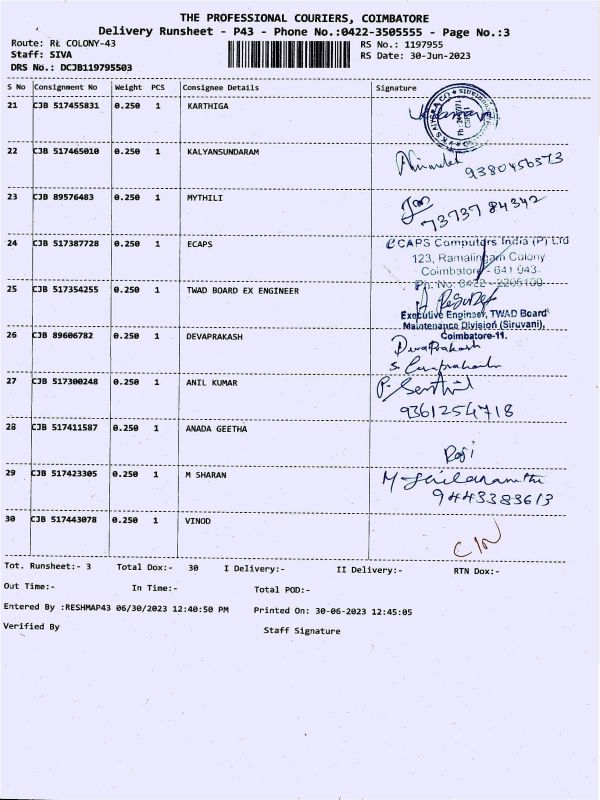 THE PROFESSIONAL COURIERS, COIMBATORE
Delivery Runsheet - P43 - Phone No.:0422-3505555 - Page No.:3
Route: RL COLONY-43 RS No.: 1197955
Staff: SIVA RS Date: 30-Jun-2023
DRS No.: DCJB119795503
S No Consignment No Weight PCS Consignee Details Signature
21 CJB 517455831 0.250 1 KARTHIGA
22 CJB 517465010 0.250 1 KALYANSUNDARAM 9380456573
23 CJB 89576483 0.250 1 MYTHILI
73737 84342
24 CJB 517387728 0.250 1 ECAPS eCAPS Computers India (P) Ltd
123, Ramalingam Colony
Coimbatore - 641 043.
Ph. No: 0422 - 2205100
25 CJB 517354255 0.250 1 TWAD BOARD EX ENGINEER
Executive Engineer, TWAD Board
Maintenance Division (Siruvani),
Coimbatore-11.
26 CJB 89606782 0.250 1 DEVAPRAKASH DevaPrakash
27 CJB 517300248 0.250 1 ANIL KUMAR P. Senthil
9361254718
28 CJB 517411587 0.250 1 ANADA GEETHA
Raji
29 CJB 517423305 0.250 1 M SHARAN
9443383613
30 CJB 517443078 0.250 1 VINOD
Tot. Runsheet:- 3 Total Dox:- 30 I Delivery:- II Delivery:- RTN Dox:-
Out Time:- In Time:- Total POD:-
Entered By :RESHMAP43 06/30/2023 12:40:50 PM Printed On: 30-06-2023 12:45:05
Verified By Staff Signature